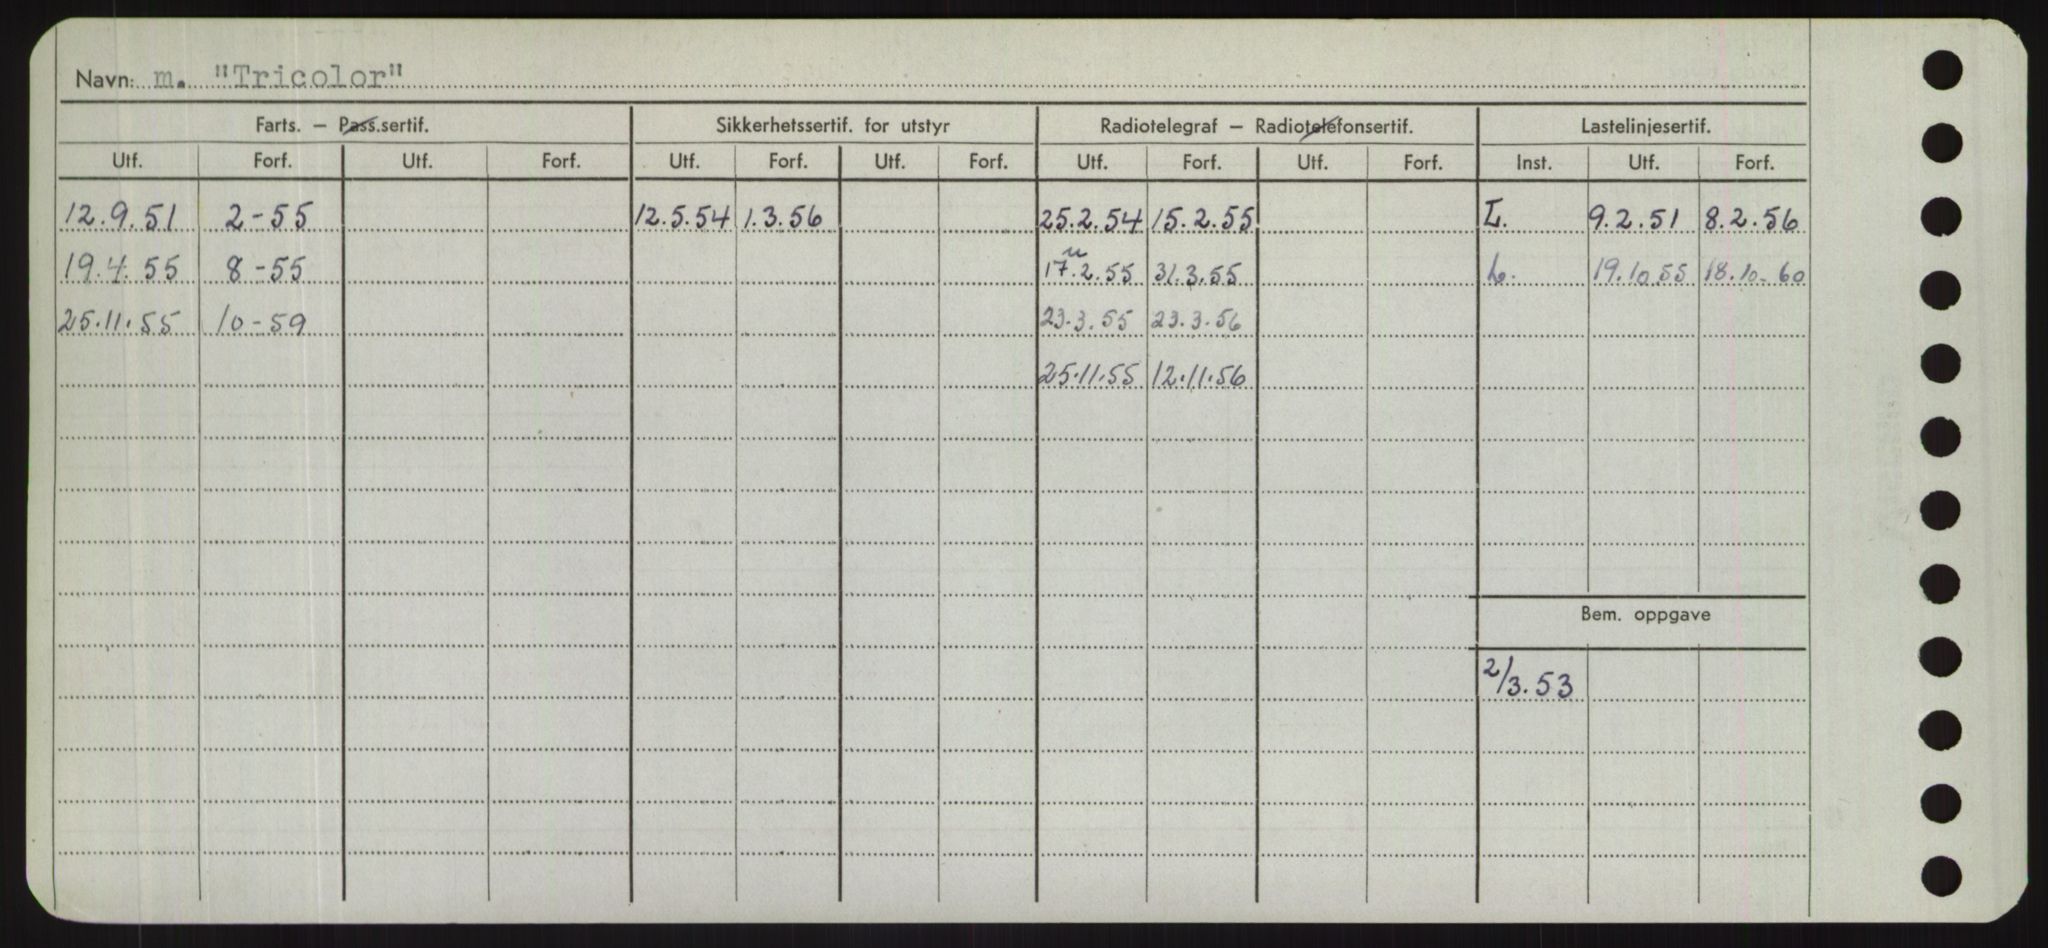 Navn: m. "Tricolor"
Farts. – Pass.sertif. Sikkerhetssertif. for utstyr Radiotelegraf – Radiotelefonsertif. Lastelinjesertif.
Utf. Forf. Utf. Forf. Utf. Forf. Utf. Forf. Utf. Forf. Utf. Forf. Inst. Utf. Forf.
12.9.51 2-55 12.5.54 1.3.56 25.2.54 15.2.55 L. 9.2.51 8.2.56
19.4.55 8-55 17.2.55 31.3.55 L. 19.10.55 18.10-60
25.11.55 10-59 23.3.55 23.3.56
25.11.55 12.11.56
Bem. oppgave
2/3.53